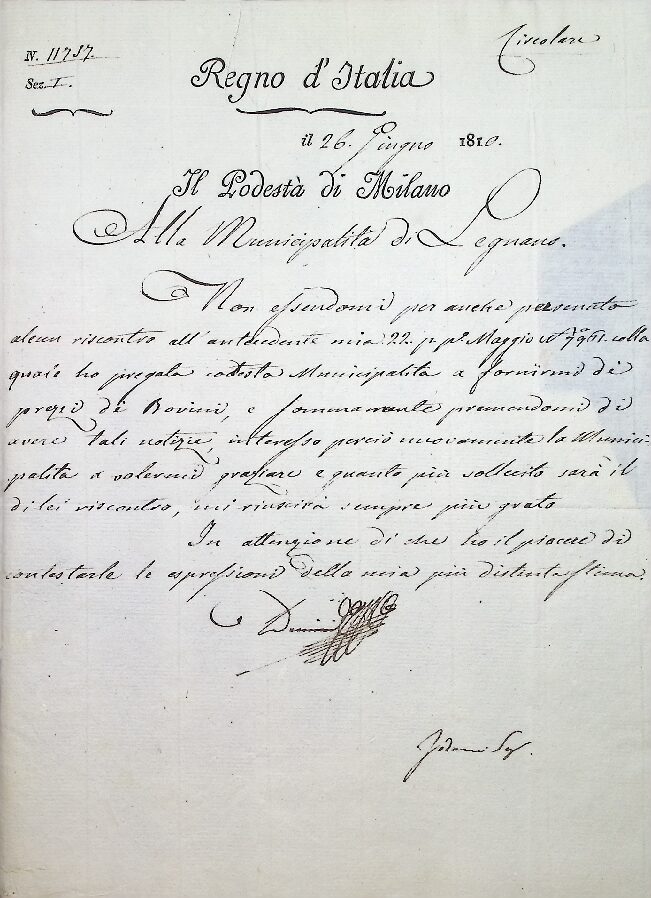 N. 11757.
Circolare
Sez. I.
Regno d'Italia
il 26. Giugno 1810.
Il Podestà di Milano
Alla Municipalità di Legnano.
Non essendomi per anche pervenuto
alcun riscontro all'antecedente mia 22. p. p.o Maggio N.o 7961. colla
quale ho pregata codesta Municipalità a fornirmi dè
prezzi dè Bovini, e sommamente premendomi di
avere tali notizie, interesso perciò nuovamente la Munici-
palità a volermi graziare e quanto più sollecito sarà il
di lei riscontro, mi riuscirà sempre più grato
In attenzione di che ho il piacere di
contestarle le espressioni della mia più distinta stima.